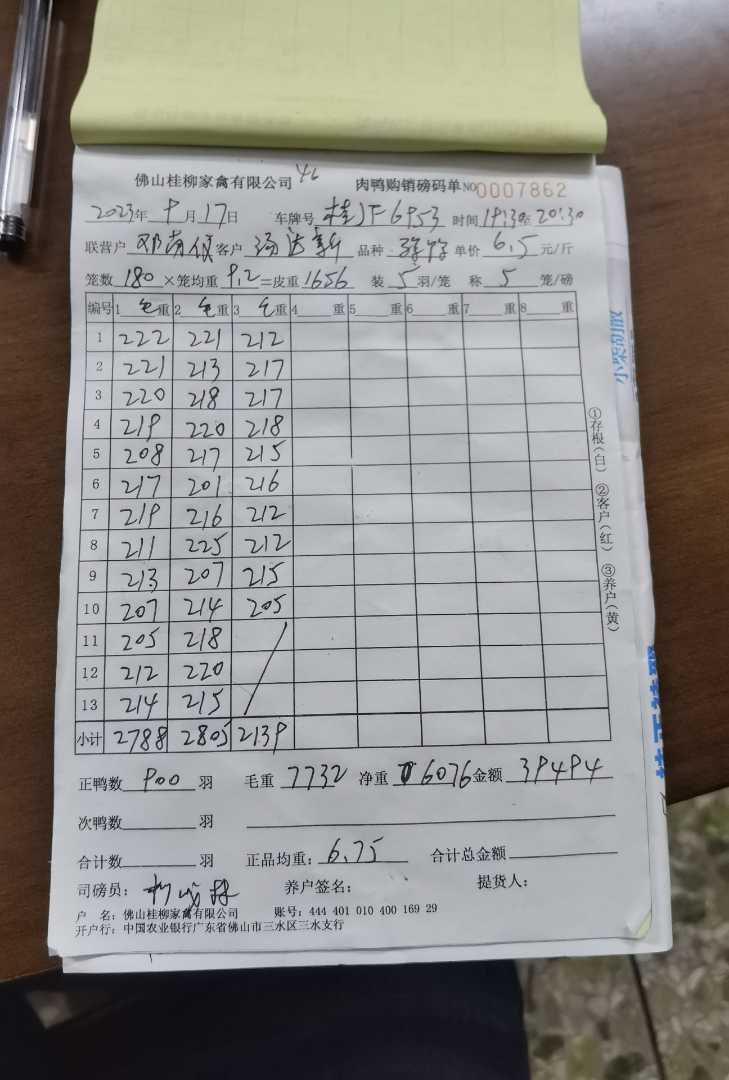 佛山桂柳家禽有限公司 46 肉鸭购销磅码单 NO 0007862
2023年 9月 17日 车牌号 桂JF6953 时间 19:30至20:30
联营户 邓 客户 汤达新 品种 单价 6.5 元/斤
笼数 180 ×笼均重 9.2 =皮重 1656 装 5 羽/笼 称 5 笼/磅
编号 1 毛重 2 毛重 3 毛重 4 重 5 重 6 重 7 重 8 重
1 222 221 212
2 221 213 217
3 220 218 217
4 219 220 218
5 208 217 215
6 217 201 216
7 219 216 212
8 211 225 212
9 213 207 215
10 207 214 205
11 205 218
12 212 220
13 214 215
小计 2788 2805 2139
正鸭数 900 羽 毛重 7732 净重 6076 金额 39494
次鸭数 羽
合计数 羽 正品均重: 6.75 合计总金额
司磅员: 养户签名: 提货人:
户 名: 佛山桂柳家禽有限公司 账号: 444 401 010 400 169 29
开户行: 中国农业银行广东省佛山市三水区三水支行
①存根(白) ②客户(红) ③养户(黄)